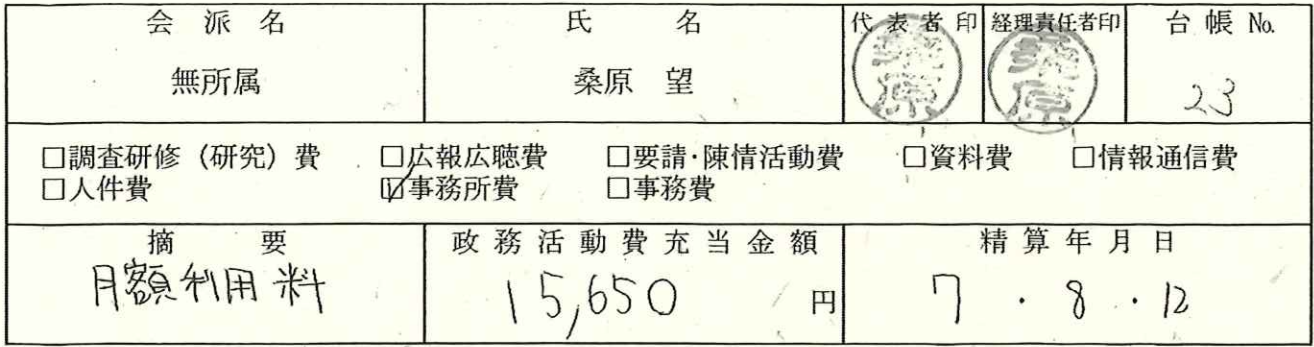 会派名 氏名 代表者印 経理責任者印 台帳No.
無所属 桑原 望 桑原 桑原 23
□調査研修（研究）費 □広報広聴費 □要請・陳情活動費 □資料費 □情報通信費
□人件費 ☑事務所費 □事務費
摘要 政務活動費充当金額 精算年月日
月額利用料 15,650 円 7・8・12